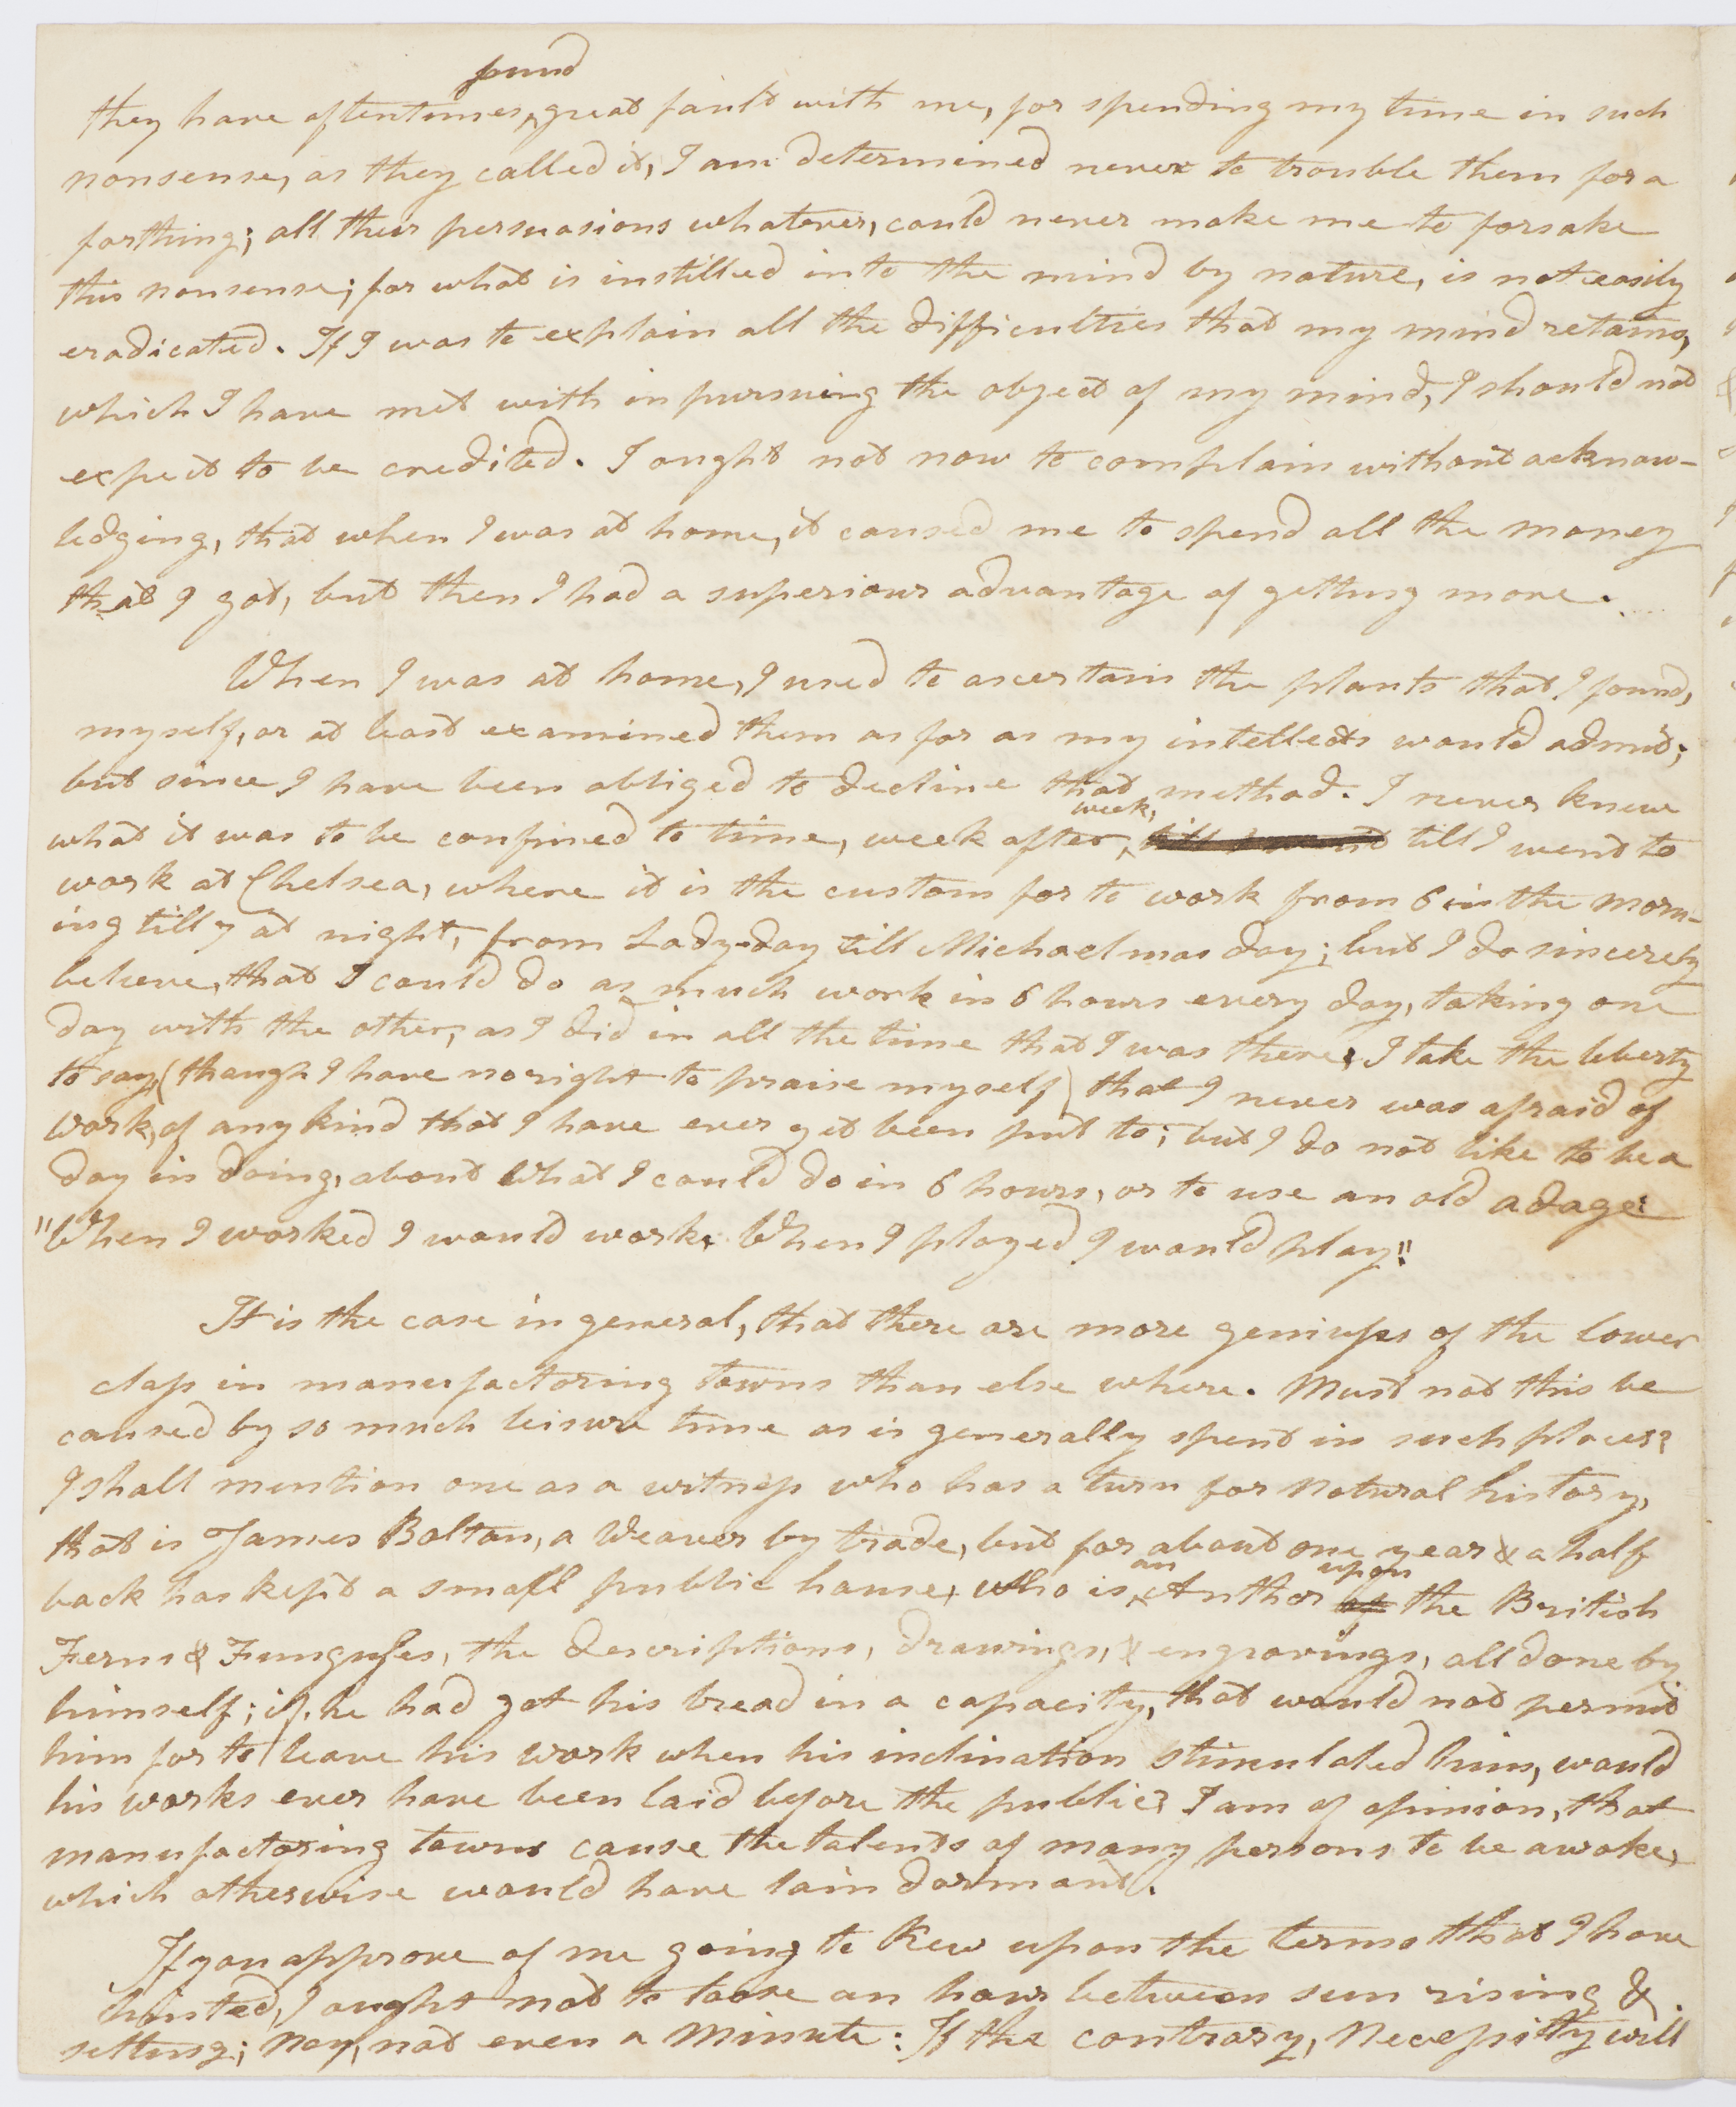 found
they have oftentimes, great fault with me, for spending my time in such
nonsense, as they called it, I am determined never to trouble them for a
farthing; all their persuasions whatever, could never make me to forsake
this nonsense; for what is instilled into the mind by nature, is not easily
eradicated. If I was to explain all the difficulties that my mind retains,
which I have met with in pursuing the object of my mind, I should not
expect to be credited. I ought not now to complain without acknow-
ledging, that when I was at home, it caused me to spend all the money
that I got, but then I had a superiour advantage of getting more.
When I was at home, I used to ascertain the plants that I found,
myself, or at least examined them as far as my intellects would admit;
but since I have been obliged to decline that method. I never knew
week,
what it was to be confined to time, week after, till I went till I went to
work at Chelsea, where it is the custom for to work from 6 in the morn-
ing till 7 at night, from Lady-day till Michaelmas day; but I do sincerely
believe, that I could do as much work in 6 hours every day, taking one
day with the other, as I did in all the time that I was there. I take the liberty
to say, (though I have no right to praise myself) that I never was afraid of
work, of any kind that I have ever yet been put to; but I do not like to be a
day in doing, about what I could do in 6 hours, or to use an old adage:
"When I worked I would work. When I played I would play."
It is the case in general, that there are more geniuses of the lower
class in manufactoring towns than else where. Must not this be
caused by so much leisure time as is generally spent in such places?
I shall mention one as a witness who has a turn for Natural history,
that is James Bolton, a Weaver by trade, but for about one year & a half
an upon
back has kept a small public house, who is Author of the British
Ferns & Fungusses, the descriptions, drawings, & engravings, all done by
himself; if he had got his bread in a capacity, that would not permit
him for to leave his work when his inclination stimulated him, would
his works ever have been laid before the public? I am of opinion, that
manufactoring towns cause the talents of many persons to be awoke,
which otherwise would have lain dormant.
If you approve of me going to Kew upon the terms that I have
hinted, I ought not to loose an hour between sun rising &
setting; nay, not even a minute: If the contrary, Necessity will